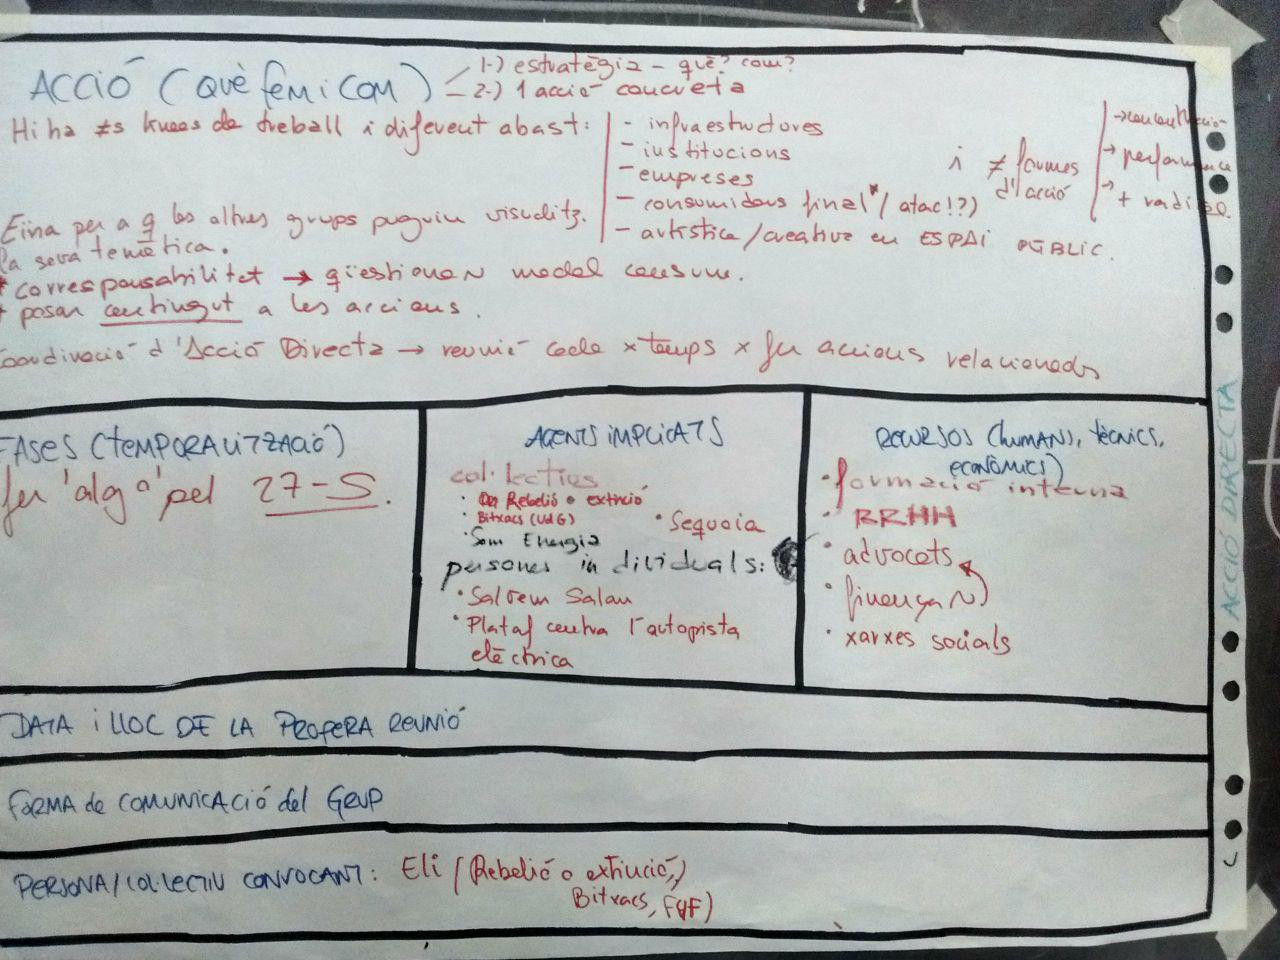 ACCIÓ (QUÈ fEM i COM)
1-) estratègia - què? com?
2-) 1 acció concreta
Hi ha ≠s línees de treball i diferent abast:
- infraestructures
- institucions
- empreses
- consumidors final* (atac!?)
- artística/creativa en ESPAI PÚBLIC.
i ≠ formes
d'acció
→ concentració
→ performance
→ + radical.
Eina per a q les altres grups puguin visualitz.
la seva temàtica.
* corresponsabilitat → qüestionar model consum.
+ posar contingut a les accions.
Coordinació d'Acció Directa → reunió cada x temps x fer accions relacionades
FASES (TEMPORALITZACIÓ)
fer 'algo' pel 27-S.
AGENTS iMPLICATS
col·lectius
· Rebelió o extinció
· Bitxacs (UdG)
· Sequoia
· Som Energia
persones individuals:
· Salvem Salau
· Plataf contra l'autopista
elèctrica
RECURSOS (humans, tècnics,
econòmics)
· formació interna
· RRHH
· advocats
· finançar
· xarxes socials
DATA i LLOC DE LA PROPERA REUNIÓ
FORMA de COMUNICACIÓ del GRUP
PERSONA/COL·LECTIU CONVOCANT: Eli (Rebelió o extinció,
Bitxacs, FFF)
ACCIÓ DIRECTA